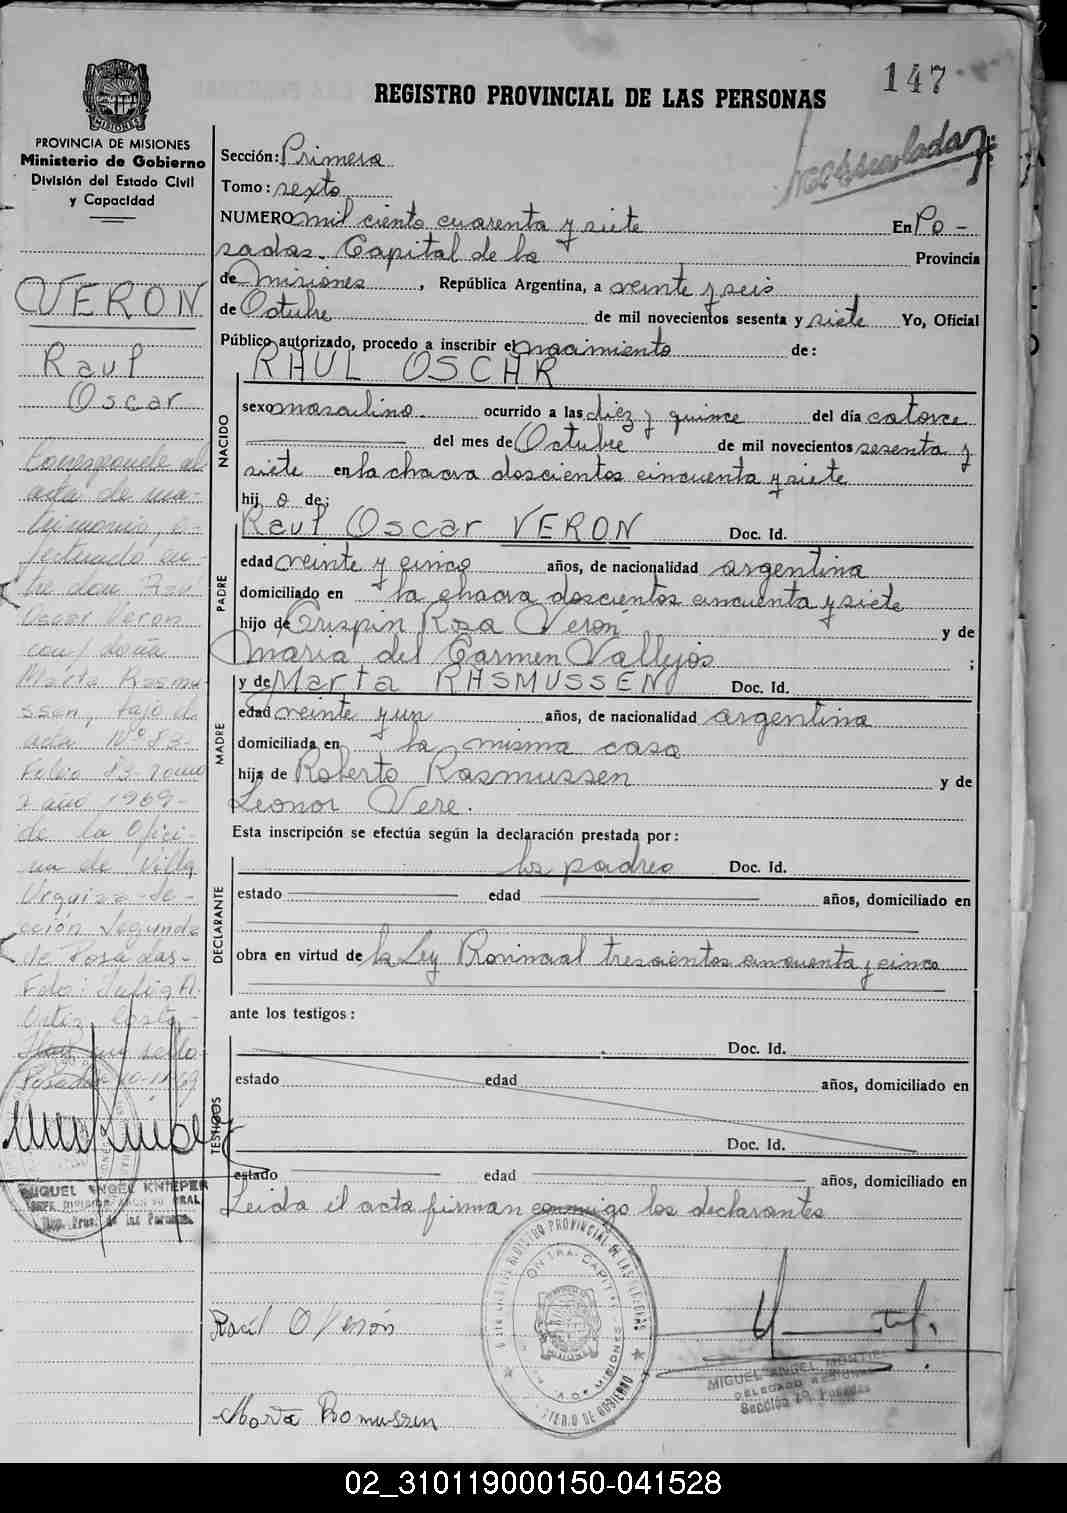 147
REGISTRO PROVINCIAL DE LAS PERSONAS
PROVINCIA DE MISIONES
Ministerio de Gobierno
División del Estado Civil
y Capacidad
VERON
Raul
Oscar
Corresponde al
acta de ma-
trimonio, e-
fectuado en-
tre don Raul
Oscar Veron
con/ doña
Marta Rasmu-
ssen, bajo el
acta Nº 83-
Folio 83-Tomo
2 año 1969-
de la Ofici-
na de Villa
Urquiza-Se-
cción Segunda
de Posadas-
Fdo: Julio A.
Ortiz
sello
Posadas 10-11-69
MIGUEL ANGEL KNIEPER
Sección: Primera
Tomo: sexto
NUMERO mil ciento cuarenta y siete En Po-
sadas. Capital de la Provincia
de Misiones, República Argentina, a veinte y seis
de Octubre de mil novecientos sesenta y siete Yo, Oficial
Público autorizado, procedo a inscribir el nacimiento de:
RAUL OSCAR
NACIDO
sexo masculino ocurrido a las diez y quince del día catorce
del mes de Octubre de mil novecientos sesenta y
siete en la chacra doscientos cincuenta y siete
hijo de:
Raul Oscar VERON Doc. Id.
PADRE
edad veinte y cinco años, de nacionalidad argentina
domiciliado en la chacra doscientos cincuenta y siete
hijo de Crispin Rosa Verón y de
Maria del Carmen Vallejos ;
y de Marta RASMUSSEN Doc. Id.
MADRE
edad veinte y un años, de nacionalidad argentina
domiciliada en la misma casa
hija de Roberto Rasmussen y de
Leonor Vere.
Esta inscripción se efectúa según la declaración prestada por:
los padres Doc. Id.
DECLARANTE
estado edad años, domiciliado en
obra en virtud de la Ley Provincial trescientos cincuenta y cinco
ante los testigos:
Doc. Id.
TESTIGOS
estado edad años, domiciliado en
Doc. Id.
estado edad años, domiciliado en
Leida el acta firman conmigo los declarantes
Raúl O Verón
Marta Romussen
MIGUEL ANGEL MONTIEL
DELEGADO REGIONAL
Sección 1ª Posadas
02_310119000150-041528